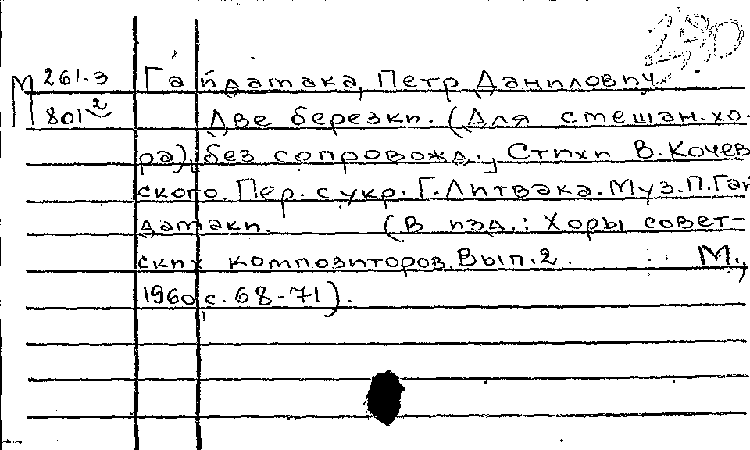 290
М 261.3 Гайдамака, Петр Данилович.
801² Две березки. (Для смешан. хо-
ра), без сопровожд., Стихи В. Кочев
ского. Пер. с укр. Г. Литвака. Муз. П. Гай
дамаки. (В изд.: Хоры совет-
ских композиторов. Вып. 2. М.,
1960, с. 68-71).